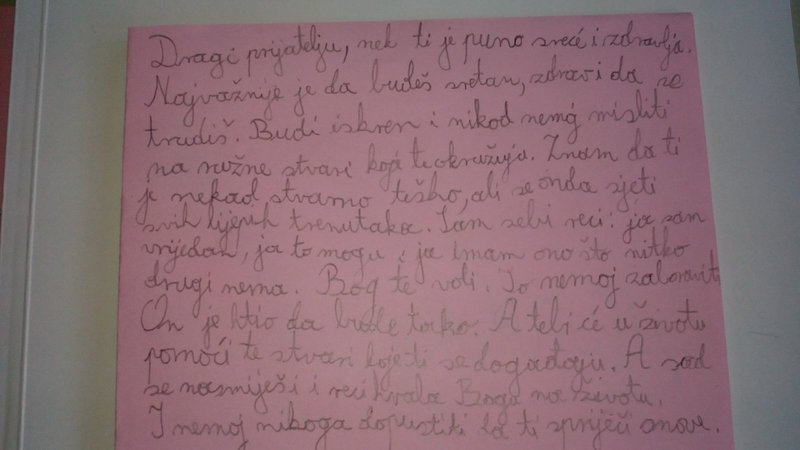 Dragi prijatelju, nek ti je puno sreće i zdravlja.
Najvažnije je da budeš sretan, zdrav i da se
trudiš. Budi iskren i nikod nemoj misliti
na ružne stvari koje te okružuju. Znam da ti
je nekad stvarno teško, ali se onda sjeti
svih lijepih trenutaka. Sam sebi reci: ja sam
vrijedan, ja to mogu i ja imam ono što nitko
drugi nema. Bog te voli. To nemoj zaboraviti
On je htio da bude tako. A tebi će u životu
pomoći te stvari koje ti se događaju. A sad
se nasmiješi i reci hvala Bogu na životu.
I nemoj nikoga dopustiti da ti spriječi snove.